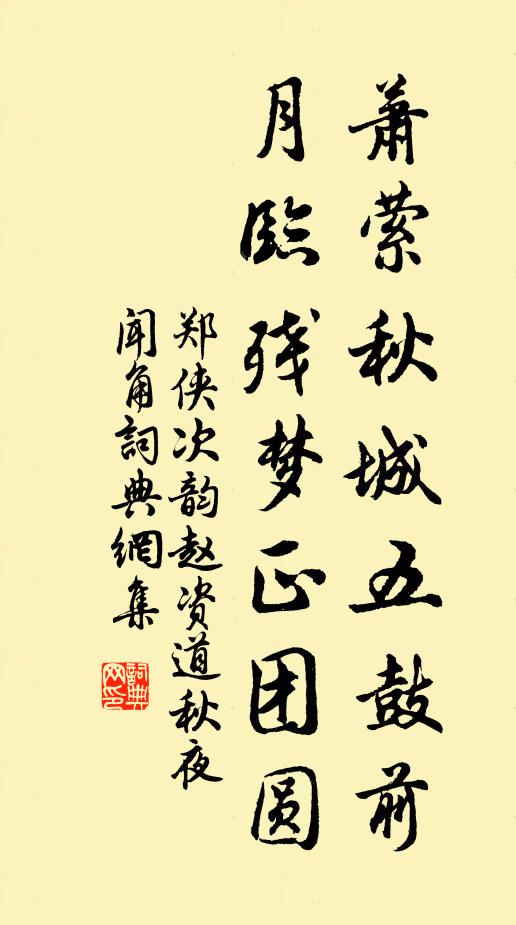 萧萦秋城五鼓前
月临残梦正团圆
郑侠次韵赵资道秋夜
闻角詞典網集
詞典网印